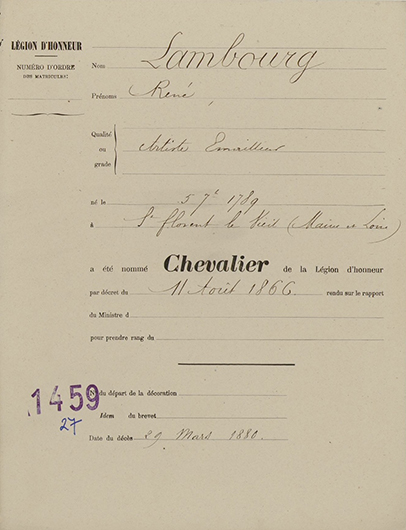 LÉGION D'HONNEUR
NUMÉRO D'ORDRE
DES MATRICULES:
Nom Lambourg
Prénoms René,
Qualité
ou
grade
Artiste Emailleur
né le 5 7e 1789
à St florent le Vieil (Maine et Loire)
a été nommé Chevalier de la Légion d'honneur
par décret du 11 Août 1866 rendu sur le rapport
du Ministre d
pour prendre rang du
1459
27
No du départ de la décoration
Idem du brevet
Date du décès 29 Mars 1880.